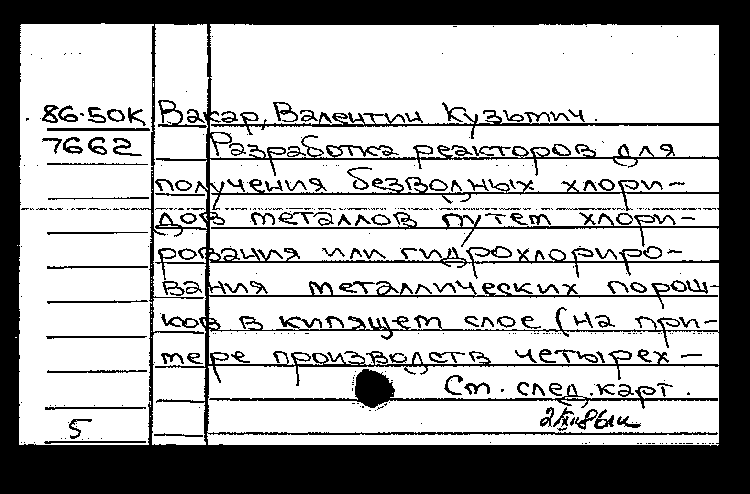 86-50К Вакар, Валентин Кузьмич.
7662 Разработка реакторов для
получения безводных хлори-
дов металлов путем хлори-
рования или гидрохлориро-
вания металлических порош-
ков в кипящем слое (на при-
мере производств четырех-
См. след. карт.
5